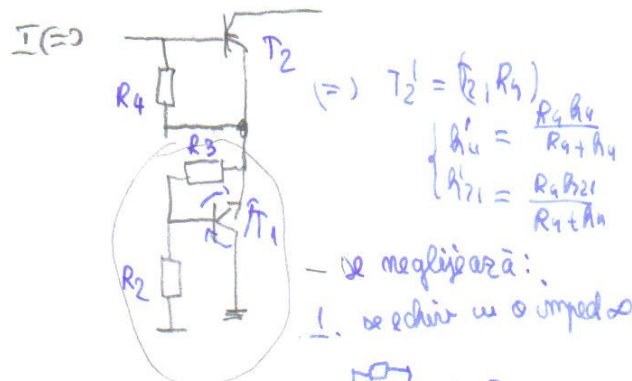 I (=)
T2
R4
(=) T2' = (T2, R4)
R3
h'11 = R4 h11 / R4 + h11
h'21 = R4 h21 / R4 + h11
T1
R2
- se neglijează:
1. se echiv cu o imped ∞